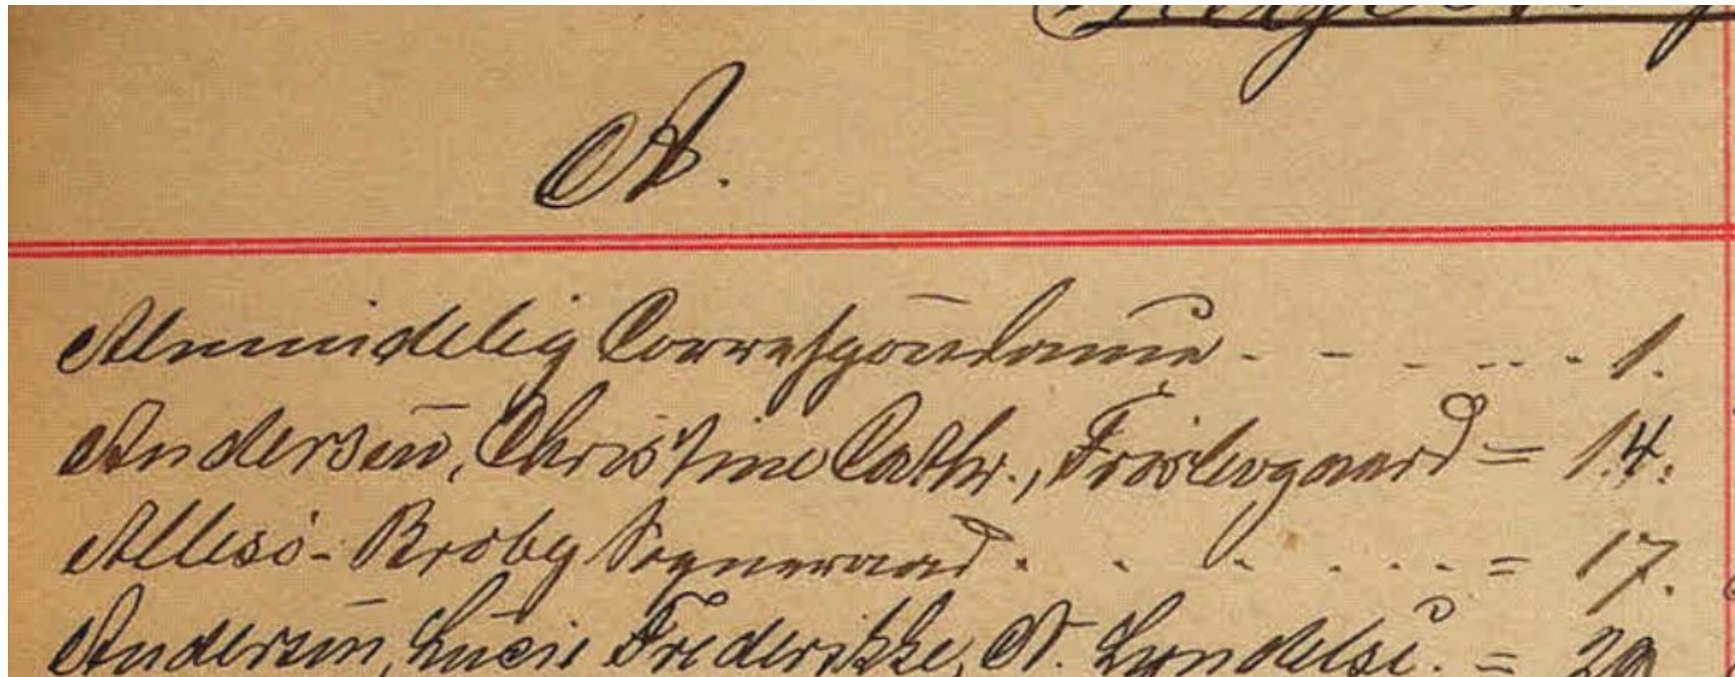 A.
Almindelig Correspondance - - - - - - 1.
Andersen, Christine Cathr., = 14.
Allesø-Broby Sogneraad . . . . . . . = 17.
Andersen, Lucie Frederikke, N. Lyndelse. = 29